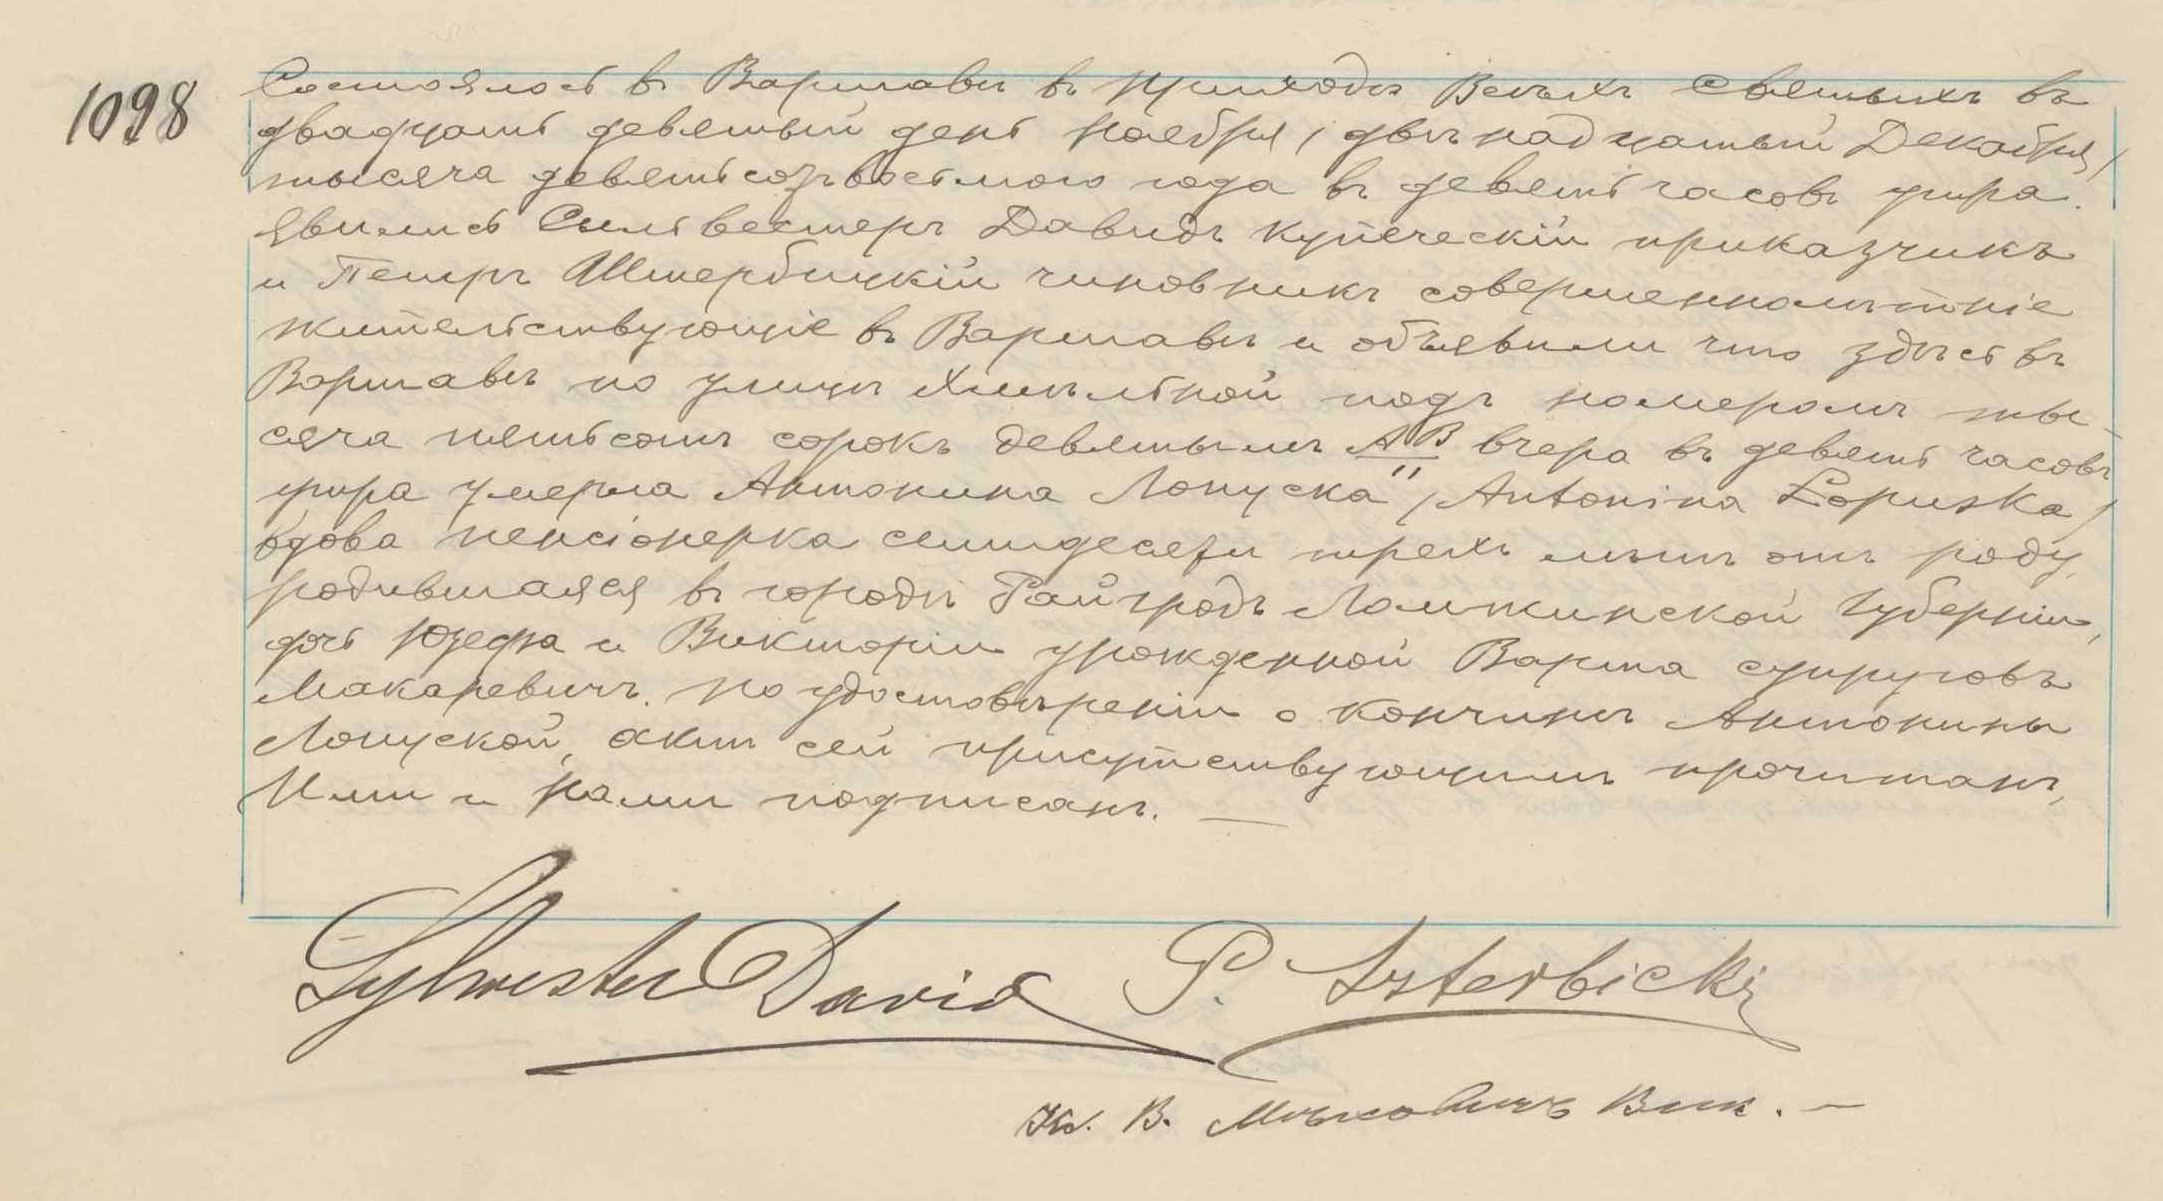 1098
Состоялось въ Варшавѣ въ приходѣ Всѣхъ Святыхъ въ
двадцать девятый день Ноября / двѣнадцатый Декабря /
тысяча девятьсотъ восьмого года въ девять часовъ утра.
Явились Сильвестеръ Давидъ купеческій приказчикъ
и Петръ Штербицкій чиновникъ совершеннолѣтніе
жительствующіе въ Варшавѣ и объявили что здѣсь въ
Варшавѣ по улицѣ Хмѣльной подъ номеромъ ты-
сяча пятьсотъ сорокъ девятымъ АВ вчера въ девять часовъ
утра умерла Антонина Лопуска / Antonina Łopuska /
вдова пенсіонерка семидесяти трехъ лѣтъ отъ роду,
родившаяся въ городѣ Райгродъ Ломжинской Губерніи,
дочь Юзефа и Викторіи урожденной Варта супруговъ
Макаревичъ. По удостовѣреніи о кончинѣ Антонины
Лопуской, актъ сей присутствующимъ прочитанъ,
Ими и Нами подписанъ. —
Sylwester David P. Szterbicki
Кс. В. Вик. —